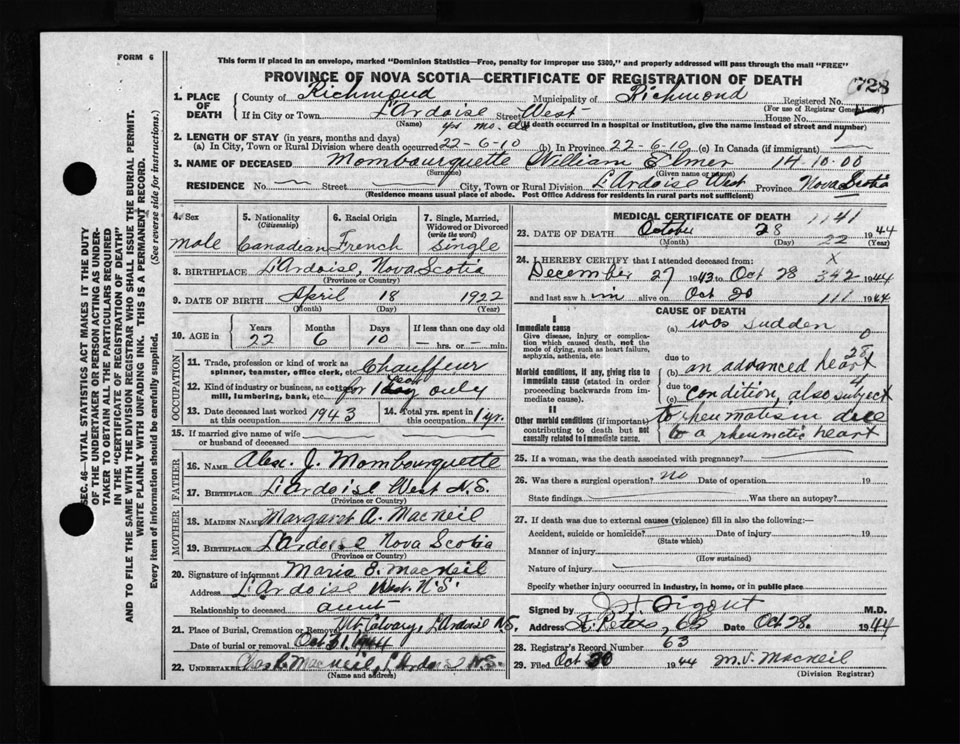 FORM 6
This form if placed in an envelope, marked "Dominion Statistics—Free, penalty for improper use $300," and properly addressed will pass through the mail "FREE"
PROVINCE OF NOVA SCOTIA—CERTIFICATE OF REGISTRATION OF DEATH
728
1. PLACE OF DEATH County of Richmond Municipality of Richmond Registered No.
(For use of Registrar General only)
If in City or Town L'Ardoise Street West House No.
(Name) (If death occurred in a hospital or institution, give the name instead of street and number)
yrs mo. ds
2. LENGTH OF STAY (in years, months and days)
(a) In City, Town or Rural Division where death occurred 22-6-10 (b) In Province 22-6-10 (c) In Canada (if immigrant)
3. NAME OF DECEASED Mombourquette William Elmer 14-10-00
(Surname) (Given name or names)
RESIDENCE No. Street City, Town or Rural Division L'Ardoise West Province Nova Scotia
(Residence means usual place of abode. Post Office Address for residents in rural parts not sufficient)
4. Sex 5. Nationality (Citizenship) 6. Racial Origin 7. Single, Married, Widowed or Divorced (write the word)
male Canadian French Single
8. BIRTHPLACE L'Ardoise, Nova Scotia
(Province or Country)
9. DATE OF BIRTH April 18 1922
(Month) (Day) (Year)
10. AGE in Years Months Days If less than one day old
22 6 10 hrs. or min.
OCCUPATION
11. Trade, profession or kind of work as spinner, teamster, office clerk, etc. Chauffeur
12. Kind of industry or business, as cotton mill, lumbering, bank, etc. for 1 only
13. Date deceased last worked at this occupation 1943 14. Total yrs. spent in this occupation 1 yr.
15. If married give name of wife or husband of deceased
FATHER
16. NAME Alex. J. Mombourquette
17. BIRTHPLACE L'Ardoise West N.S.
(Province or Country)
MOTHER
18. MAIDEN NAME Margaret A. MacNeil
19. BIRTHPLACE L'Ardoise Nova Scotia
(Province or Country)
20. Signature of informant Maria S. MacNeil
Address L'Ardoise West. N.S.
Relationship to deceased aunt
21. Place of Burial, Cremation or Removal Mt Calvary, L'Ardoise N.S.
Date of burial or removal Oct 31, 1944
22. UNDERTAKER MacNeil, L'Ardoise N.S.
(Name and address)
MEDICAL CERTIFICATE OF DEATH 1141
23. DATE OF DEATH October 28 1944
(Month) (Day) (Year)
22
24. I HEREBY CERTIFY that I attended deceased from: X
December 27 1943 to Oct 28 342 1944
and last saw him alive on Oct 20 111 1944
CAUSE OF DEATH
I
Immediate cause
Give disease, injury or complication which caused death, not the mode of dying, such as heart failure, asphyxia, asthenia, etc.
Morbid conditions, if any, giving rise to immediate cause (stated in order proceeding backwards from immediate cause).
II
Other morbid conditions (if important) contributing to death but not causally related to immediate cause.
(a) was sudden
due to
(b) an advanced heart
due to
(c) condition, also subject
to rheumatism due
to a rheumatic heart
25. If a woman, was the death associated with pregnancy?
26. Was there a surgical operation? no Date of operation 19
State findings Was there an autopsy?
27. If death was due to external causes (violence) fill in also the following:
Accident, suicide or homicide? Date of injury 19
(State which)
Manner of injury
(How sustained)
Nature of injury
Specify whether injury occurred in industry, in home, or in public place
Signed by M.D.
Address St. Peters, CB Date Oct 28. 1944
28. Registrar's Record Number 63
29. Filed Oct 30 1944 M.J. MacNeil
(Division Registrar)
SEC. 46—VITAL STATISTICS ACT MAKES IT THE DUTY OF THE UNDERTAKER OR PERSON ACTING AS UNDERTAKER TO OBTAIN ALL THE PARTICULARS REQUIRED IN THE "CERTIFICATE OF REGISTRATION OF DEATH"
AND TO FILE THE SAME WITH THE DIVISION REGISTRAR WHO SHALL ISSUE THE BURIAL PERMIT.
WRITE PLAINLY WITH UNFADING INK. THIS IS A PERMANENT RECORD.
Every item of information should be carefully supplied. (See reverse side for instructions.)